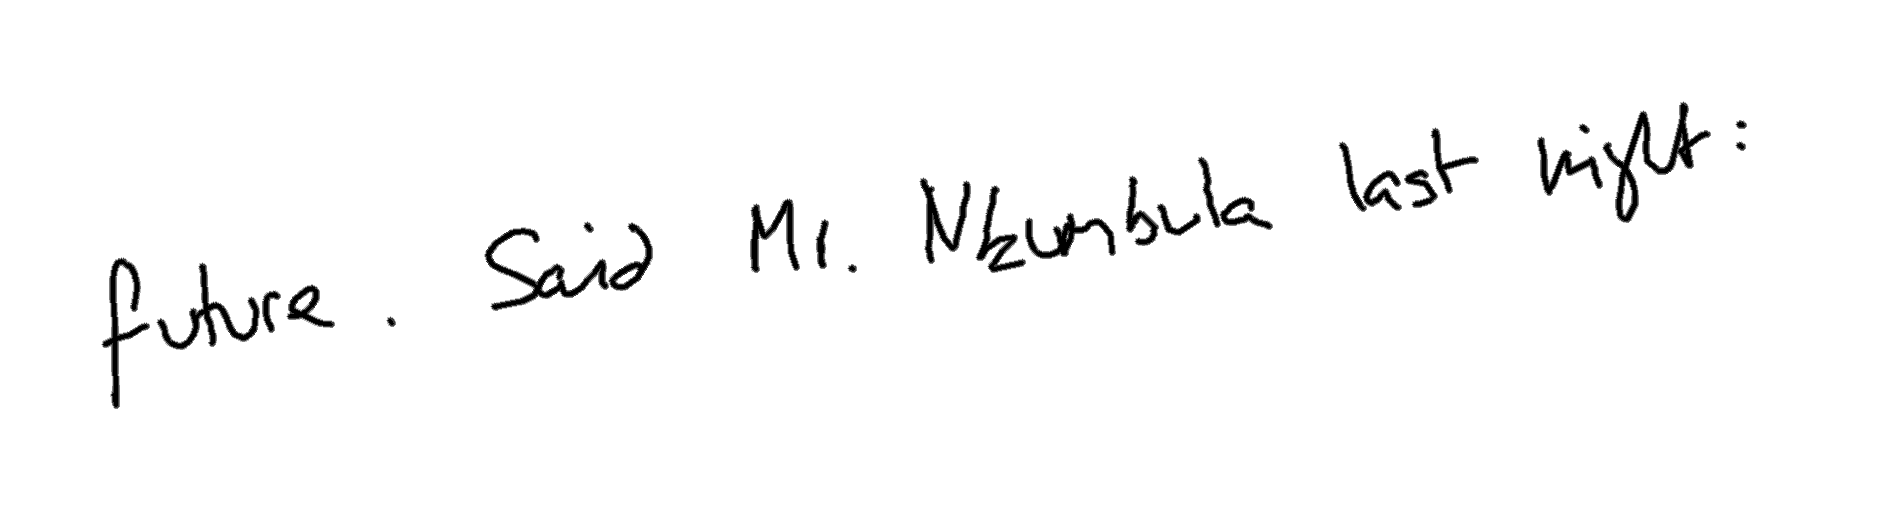 future. Said Mr. Nkumbula last night: